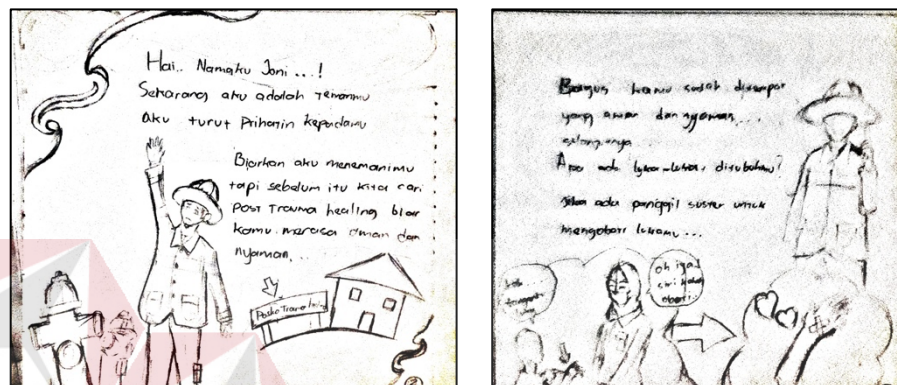 Hai.. Namaku Joni...!
Sekarang aku adalah Temanmu
aku turut Prihatin kepadamu
Biarkan aku menemanimu
tapi sebelum itu kita cari
Post Trauma healing biar
kamu merasa aman dan
nyaman...
Posko Trauma
Bagus kamu sudah ditempat
yang aman dan nyaman...
selanjutnya
Apa ada luka-luka ditubuhmu?
Jika ada panggil suster untuk
mengobati lukamu...
oh iya..